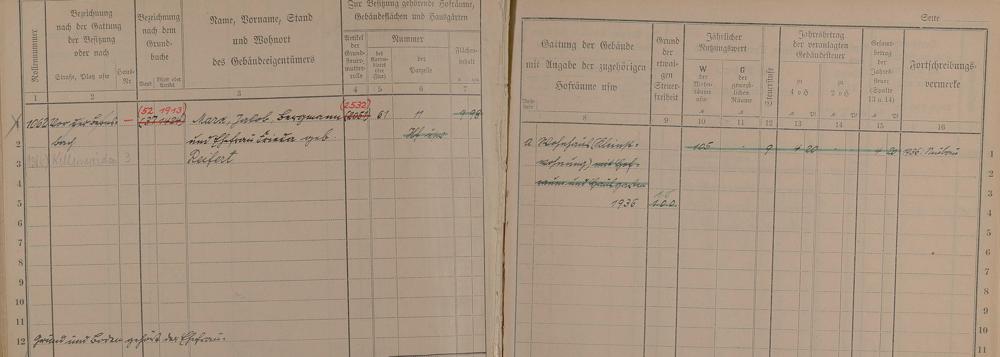 Rollennummer
Bezeichnung
nach der Gattung
der Besitzung
oder nach
Straße, Platz usw
Haus-
Nr
Bezeichnung
nach dem
Grund-
buche
Band
Blatt oder
Artikel
Name, Vorname, Stand
und Wohnort
des Gebäudeeigentümers
Zur Besitzung gehörende Hofräume,
Gebäudeflächen und Hausgärten
Artikel
der
Grund-
steuer-
mutter-
rolle
Nummer
des
Karten-
blatts
(der
Flur)
der
Parzelle
Flächen-
inhalt
1 2 3 4 5 6 7
1062
(52 1913)
(2532)
Mard, Jakob, Bergmann
61
11
9 98
und Ehefrau Frieda geb
Reifert
3
2
3
4
5
6
7
8
9
10
11
12 Grund und Boden gehört der Ehefrau.
Seite
Gattung der Gebäude
mit Angabe der zugehörigen
Hofräume usw
Grund
der
etwai-
gen
Steuer-
freiheit
Jährlicher
Nutzungswert
W
der
Wohn-
räume
usw
G
der
gewerb-
lichen
Räume
Steuerstufe
Jahresbetrag
der veranlagten
Gebäudesteuer
4 v H
2 v H
Gesamt-
betrag
der
Jahres-
steuer
(Spalte
13 u. 14)
Fortschreibungs-
vermerke
8 9 10 11 12 13 14 15 16
a Wohnhaus (Kleinst-
105 - 9 4 20 - 4 20 1936 Neubau
wohnung) mit Hof-
raum und Hausgarten
1936
1
2
3
4
5
6
7
8
9
10
11